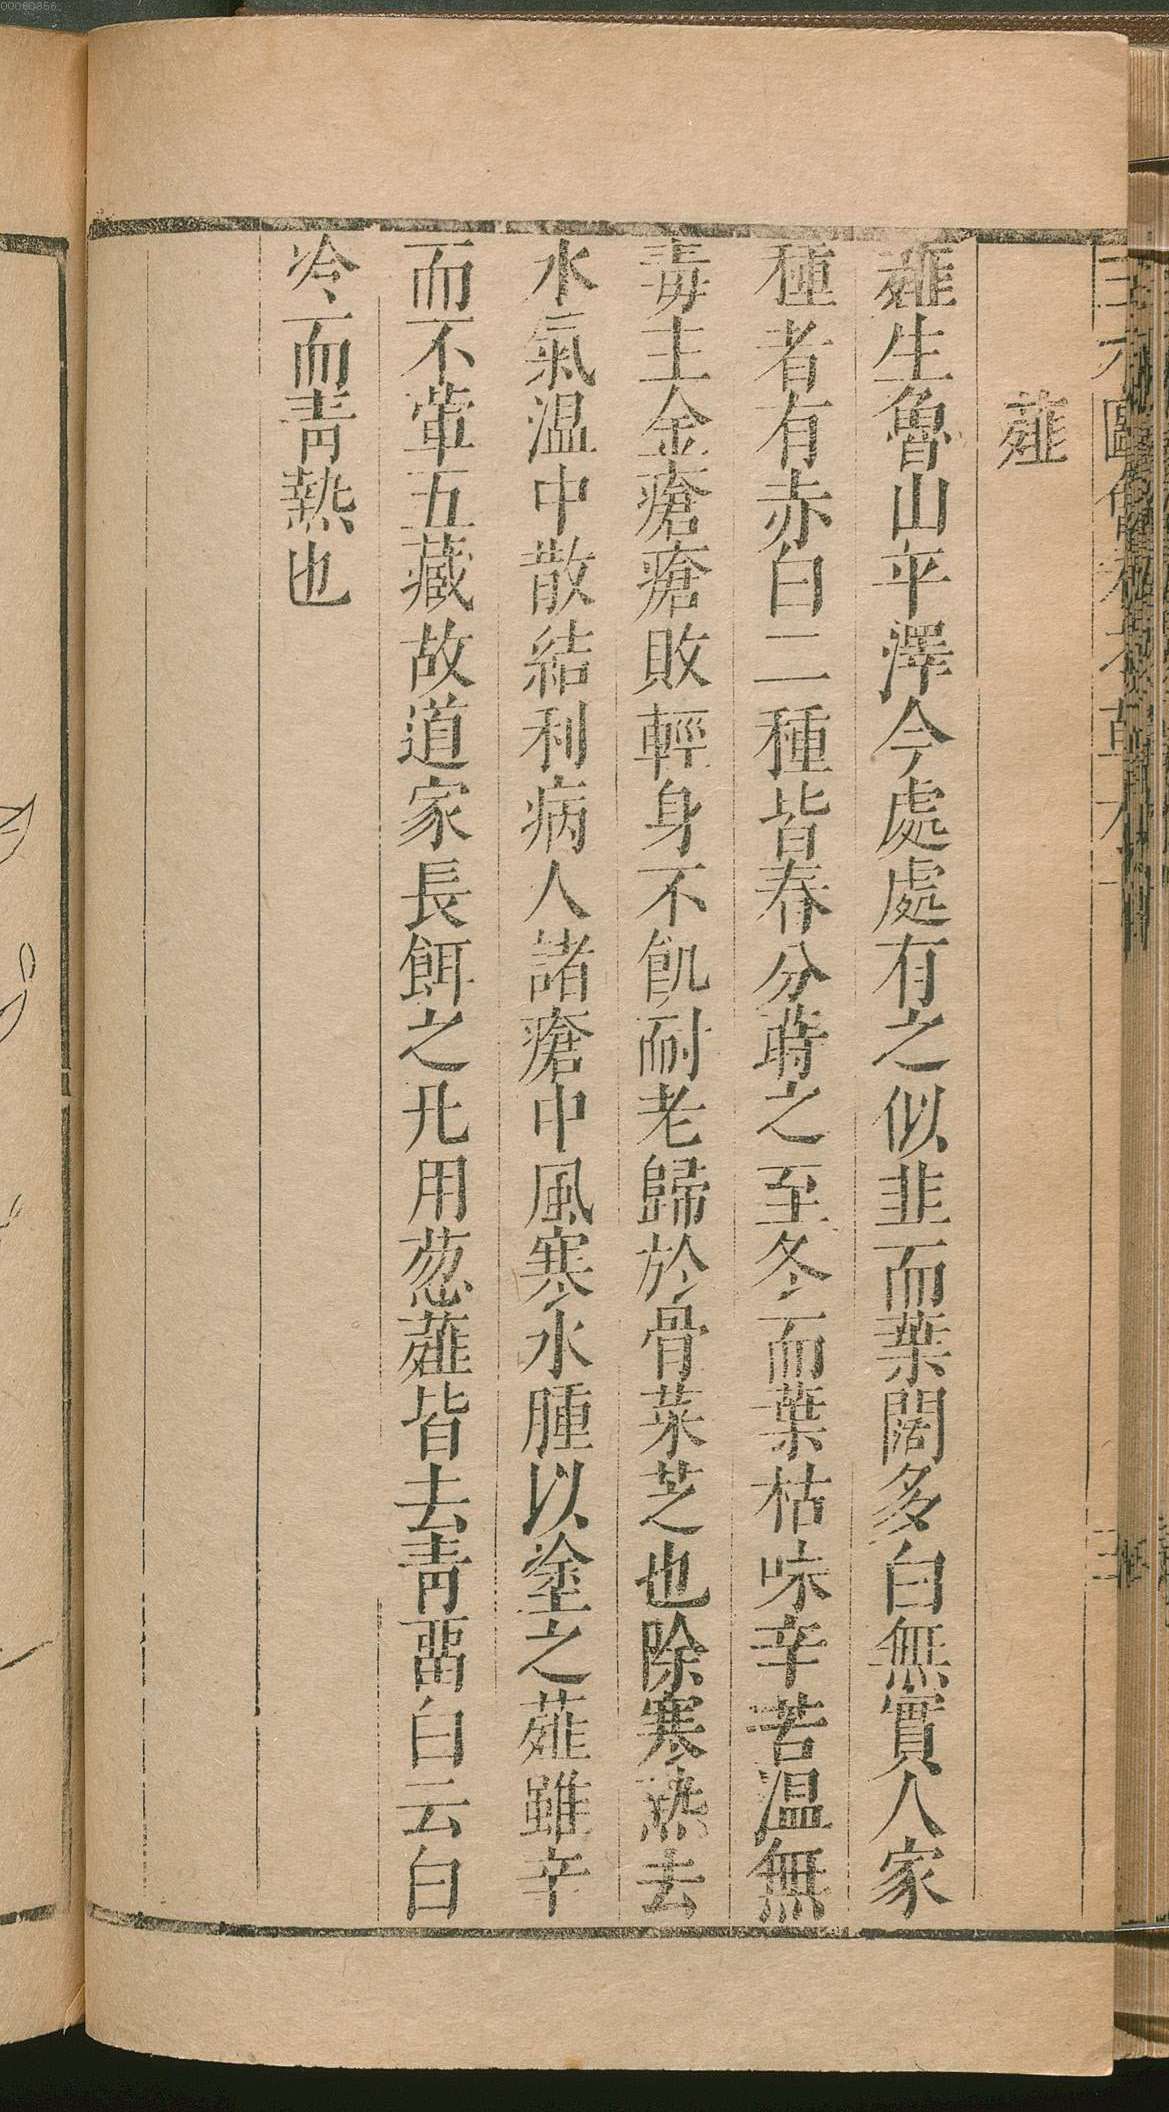 薤
薤生魯山平澤今處處有之似韭而葉闊多白無實人家
種者有赤白二種皆春分蒔之至冬而葉枯味辛苦温無
毒主金瘡瘡敗輕身不飢耐老歸於骨菜芝也除寒熱去
水氣温中散結利病人諸瘡中風寒水腫以塗之薤雖辛
而不葷五藏故道家長餌之凡用葱薤皆去青畱白云白
冷而青熱也
00060856